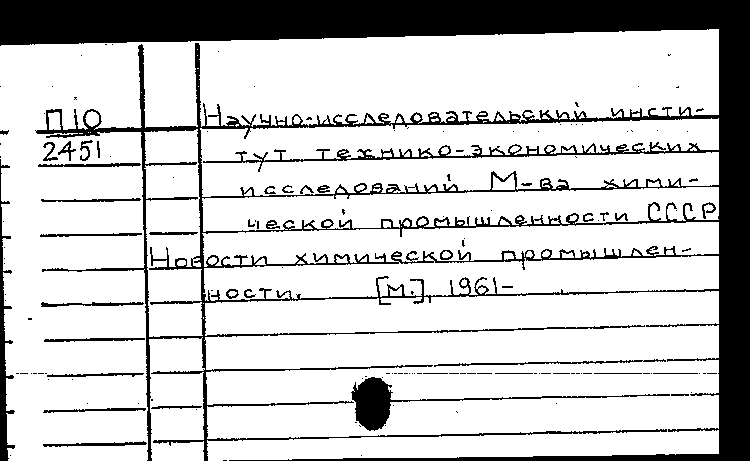 П10 Научно-исследовательский инсти-
2451 тут технико-экономических
исследований М-ва хими-
ческой промышленности СССР.
Новости химической промышлен-
ности. [М.], 1961-